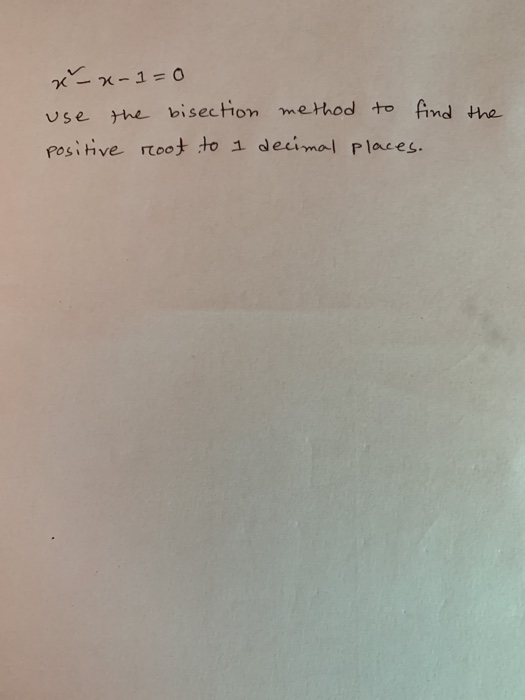 x² - x - 1 = 0
Use the bisection method to find the
positive root to 1 decimal places.